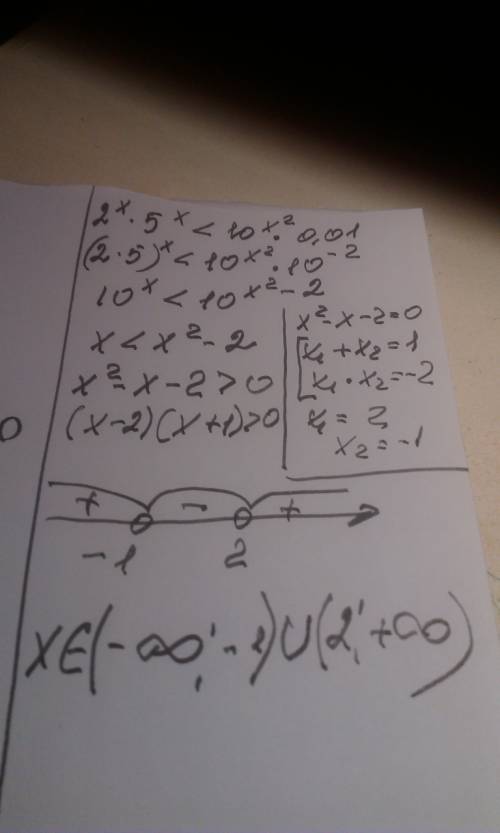 2^x · 5^x < 10^x² · 0,01
(2·5)^x < 10^x² · 10^-2
10^x < 10^x²-2
x < x² - 2
x² - x - 2 > 0
(x-2)(x+1)>0
x² - x - 2 = 0
x₁ + x₂ = 1
x₁ · x₂ = -2
x₁ = 2
x₂ = -1
0
+ - +
-1 2
XE(-∞; -1)U(2; +∞)